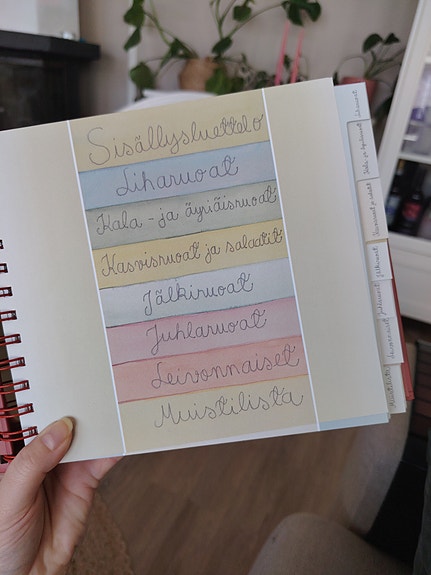 Sisällysluettelo
Liharuoat
Kala - ja äyriäisruoat
Kasvisruoat ja salaatit
Jälkiruoat
Juhlaruoat
Leivonnaiset
Muistilista
Liharuoat
Kala- ja äyriäisruoat
Kasvisruoat ja salaatit
Jälkiruoat
Juhlaruoat
Leivonnaiset
Muistilista